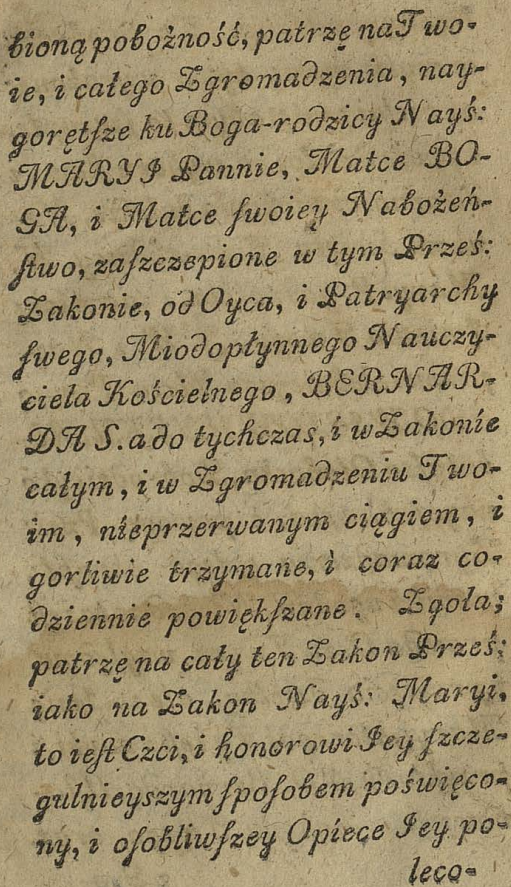 bioną pobożność, patrzę na Two-
ie, i całego Zgromadzenia, nay-
gorętſze ku Boga-rodzicy Nayś:
MARYI Pannie, Matce BO-
GA, i Matce ſwoiey Nabożeń-
ſtwo, zaſzczepione w tym Prześ:
Zakonie, od Oyca, i Patryarchy
ſwego, Miodopłynnego Nauczy-
ciela Kościelnego, BERNAR-
DA S. a do tychczas, i w Zakonie
całym, i w Zgromadzeniu Two-
im, nieprzerwanym ciągiem, i
gorliwie trzymane, i coraz co-
dziennie powiękſzane. Zgoła;
patrzę na cały ten Zakon Prześ:
iako na Zakon Nayś: Maryi,
to ieſt Czci, i honorowi Jey ſzcze-
gulnieyszym ſpoſobem poświęco-
ny, i oſobliwſzey Opiece Jey po-
leco-